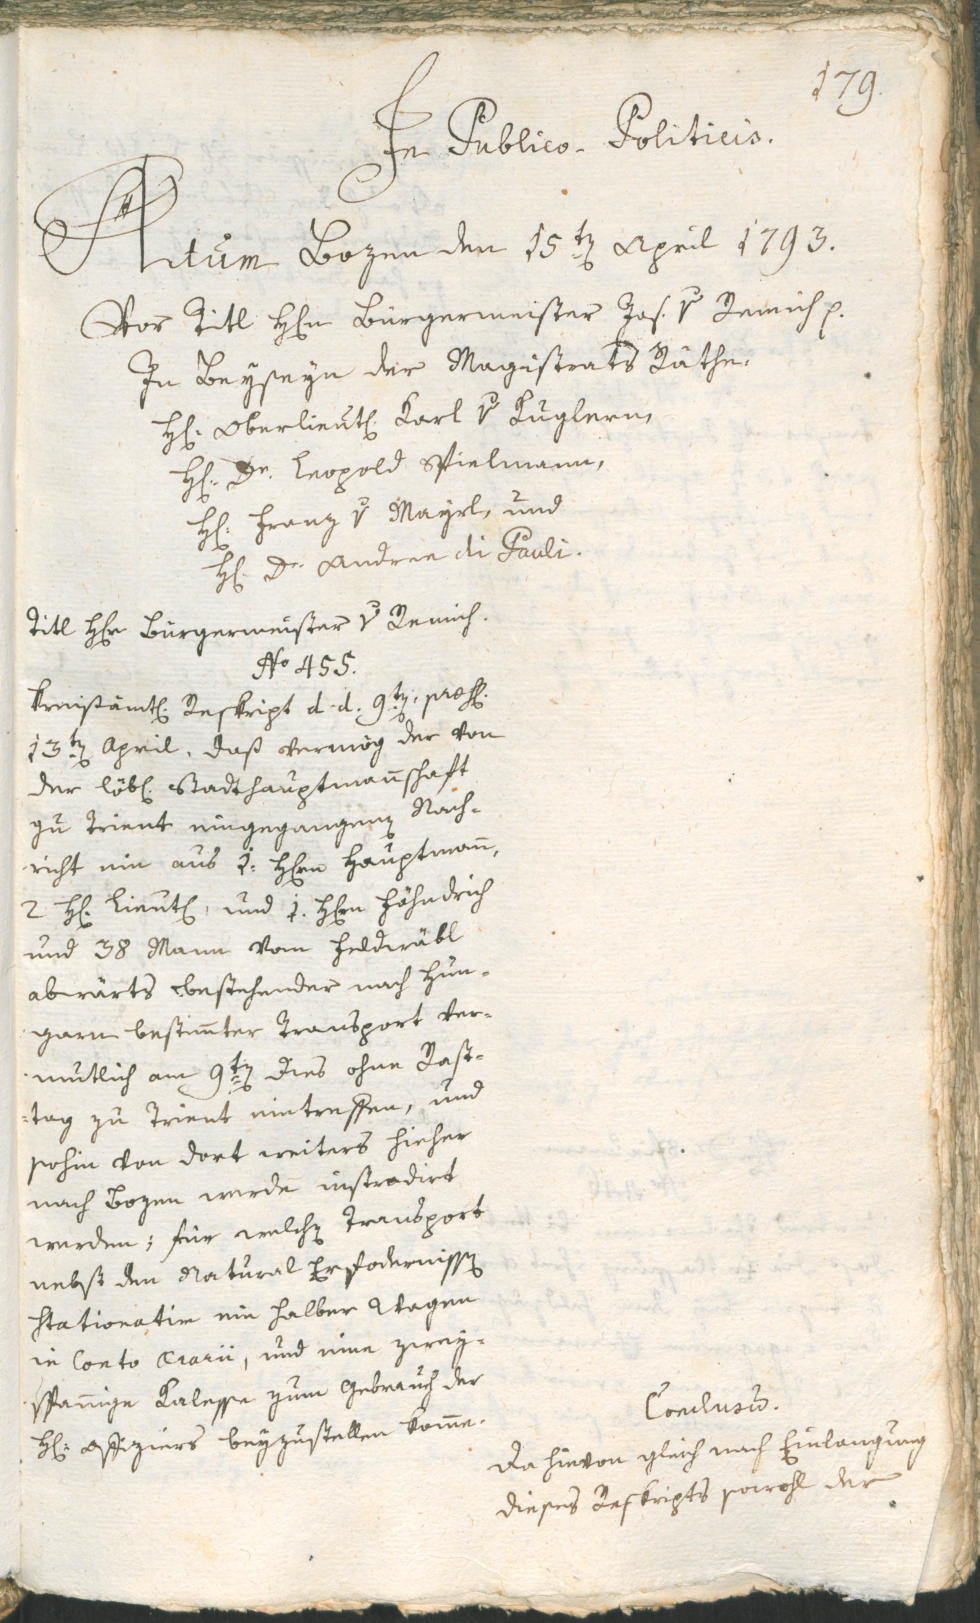 179.
In Publico-Politicis.
Actum Bozen den 15t. April 1793.
Vor Titl Hrn Bürgermeister Jos. v Remich p.
In Beyseyn der Magistrats Räthe.
H: Oberlieut. Karl v Kuglern,
H: Dr. Leopold Spielmann,
H: Franz v Mayrl, und
H: Dr. Andree di Pauli.
Titl Hhr Bürgermeister v Remich.
No 455.
Kreißämtl. Reskript d. d. 9t. praes.
13t. April. daß vermög der von
der löbl. Stadthauptmannschaft
zu Trient eingegangen Nach-
richt ein aus 1. Hrn Hauptmann,
2 H. Lieut., und 1. Hrn Fähndrich
und 38 Mann vom
abwärts bestehender nach Hun-
garn bestimter Transport ver-
mutlich am 9t. dies ohne Rast-
tag zu Trient eintreffen, und
sohin von dort weiters hieher
nach Bozen werde instradirt
werden; für welch Transport
nebst den Natural Erfodernissen
stationatim ein halber Wagen
in Conto Erarii, und eine zwey-
spänige Kalesse zum Gebrauch der
H: Offiziers beyzustellen kome.
Conclusum.
Da hievon gleich nach Einlangung
dieses Reskripts sowohl der